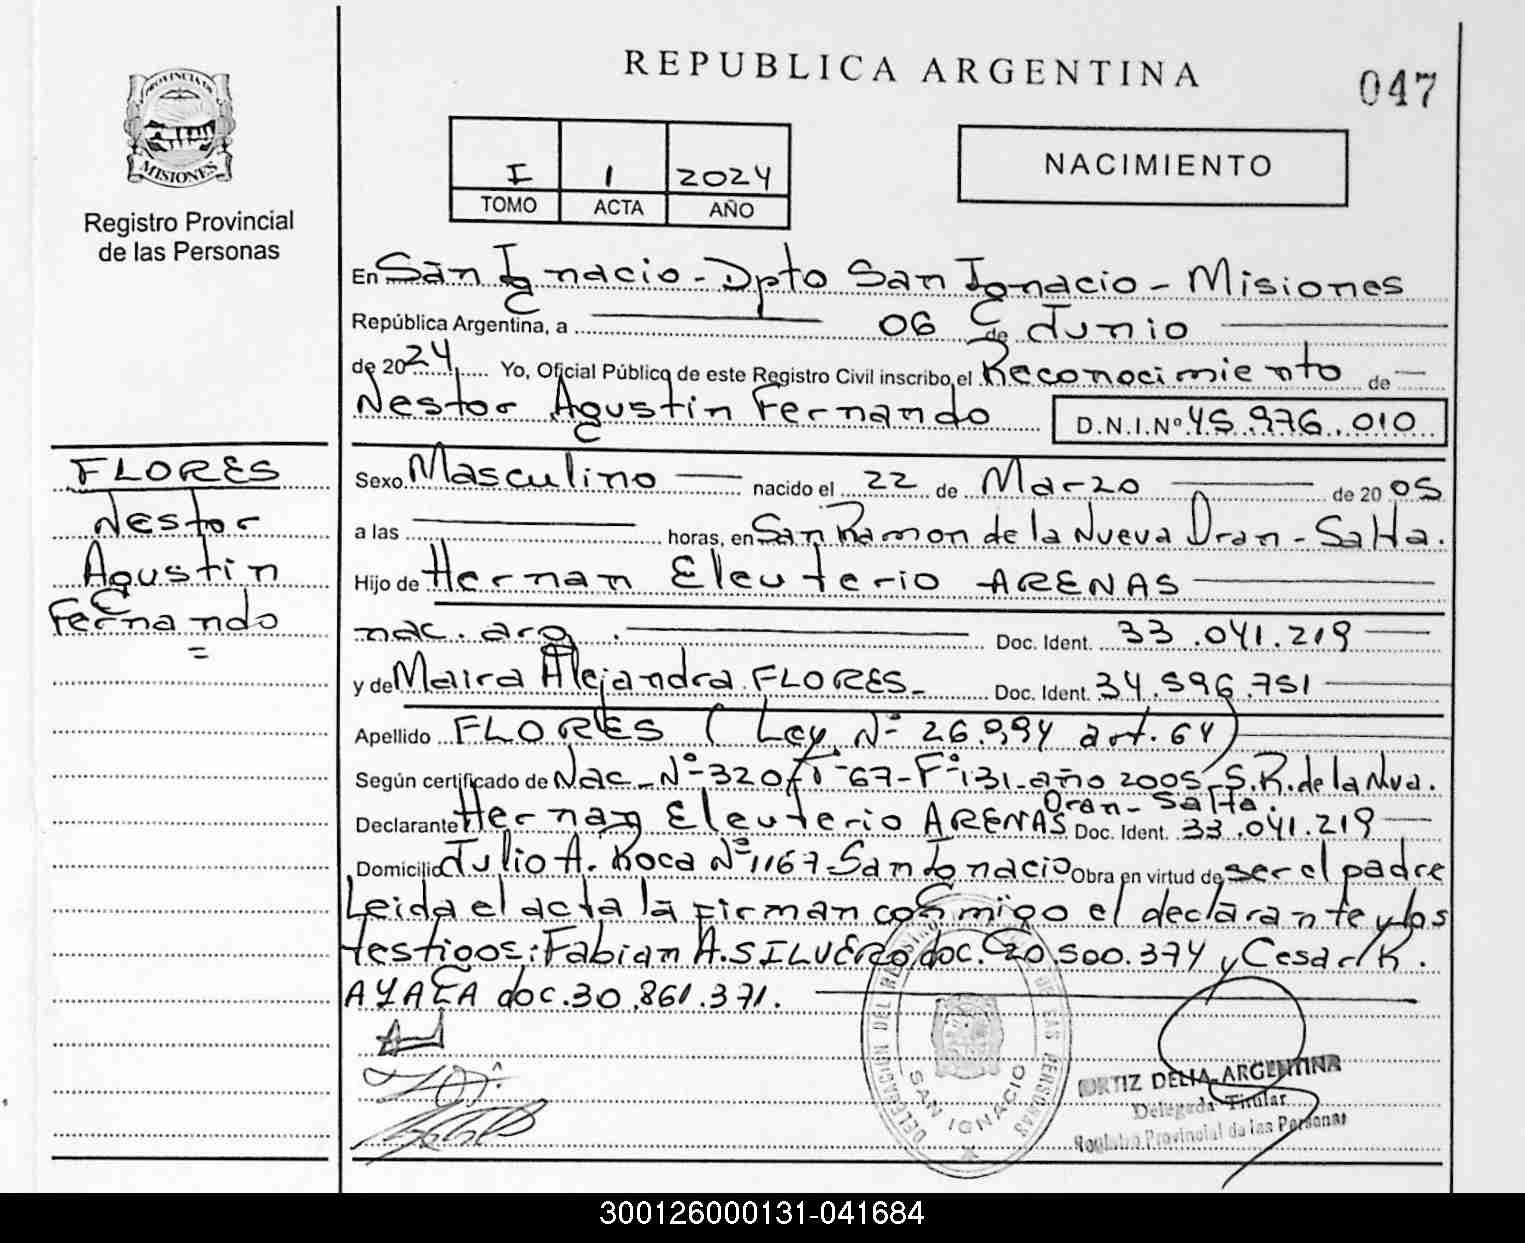 REPUBLICA ARGENTINA
047
PROVINCIA DE
MISIONES
Registro Provincial
de las Personas
I 1 2024
TOMO ACTA AÑO
NACIMIENTO
En San Ignacio - Dpto San Ignacio - Misiones
República Argentina, a 06 de Junio
de 2024 Yo, Oficial Público de este Registro Civil inscribo el Reconocimiento de
Nestor Agustin Fernando D.N.I.Nº 45.976.010
FLORES
Nestor
Agustin
Fernando
=
Sexo Masculino nacido el 22 de Marzo de 20 05
a las horas, en San Ramon de la Nueva Oran - Salta.
Hijo de Hernan Eleuterio ARENAS
nac. arg. Doc. Ident. 33.041.219
y de Maira Alejandra FLORES - Doc. Ident. 34.596.751
Apellido FLORES (Ley Nº 26.994 art. 64)
Según certificado de Nac - Nº 320 Tº 67 - Fº 131 - año 2005 - S.R. de la Nva.
Oran - Salta.
Declarante Hernan Eleuterio ARENAS Doc. Ident. 33.041.219
Domicilio Julio A. Roca Nº 1167 - San Ignacio Obra en virtud de ser el padre
Leida el acta la firman conmigo el declarante y los
testigos: Fabian A. SILVERO doc. 20.500.374 y Cesar R.
AYALA doc. 30.861.371.
DELEGACION DEL REGISTRO DE LAS PERSONAS
SAN IGNACIO
ORTIZ DELIA ARGENTINA
Delegada Titular
Registro Provincial de las Personas
300126000131-041684